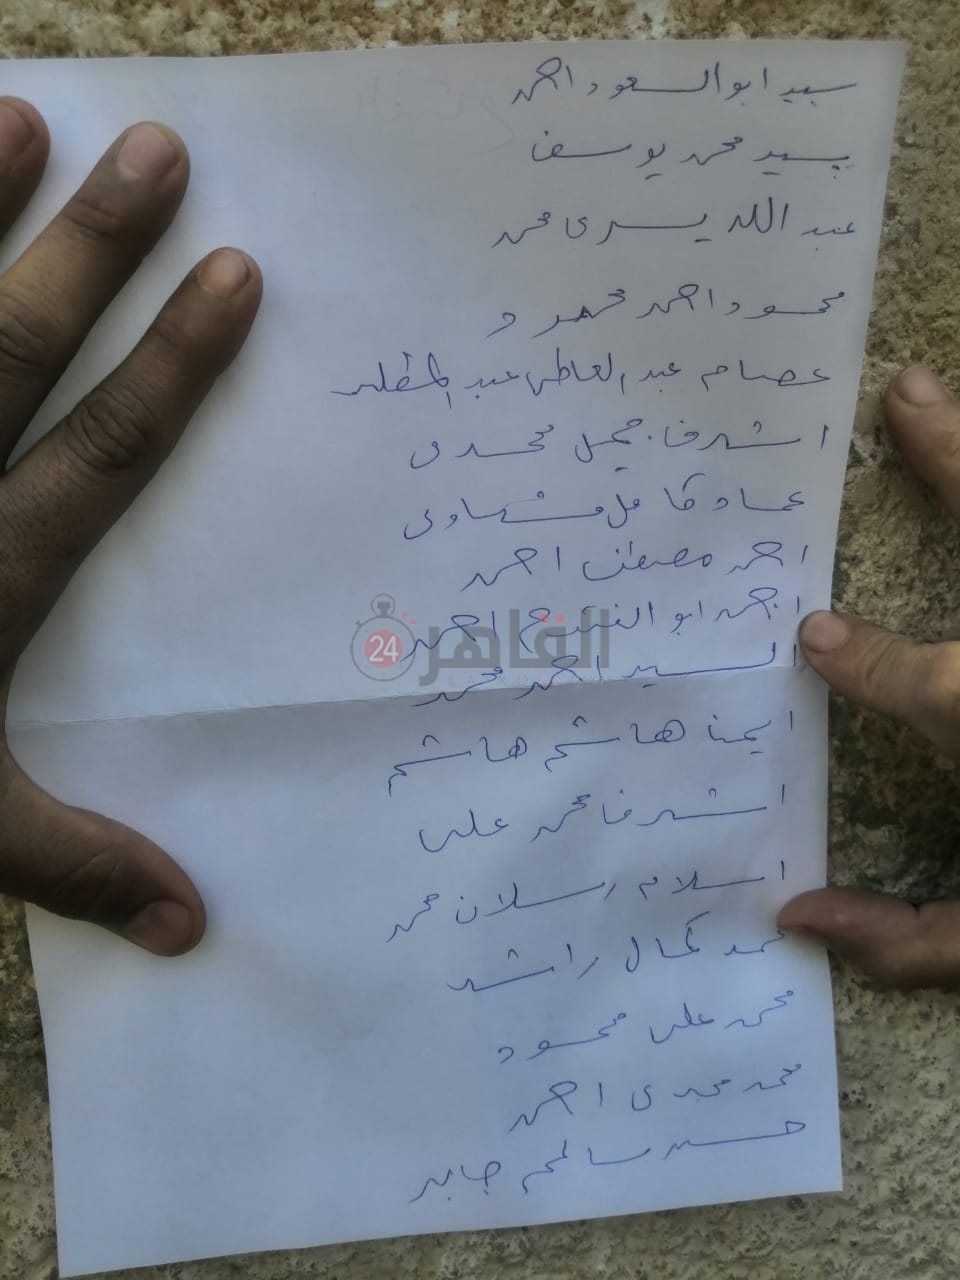 سيد ابو السعود احمد
سيد محمد يوسف
عبد الله يسرى محمد
محمود احمد محمود
عصام عبد العاطى عبد المطلب
اشرف جميل محمدى
عماد كامل مشهاوى
احمد مصطفى احمد
احمد ابو الفتوح احمد
السيد احمد محمد
القاهرة 24
CAIRO
ايمن هاشم هاشم
اشرف محمد على
اسلام رسلان محمد
محمد كمال راشد
محمد على محمود
محمد مجدى احمد
حسين سالم جابر